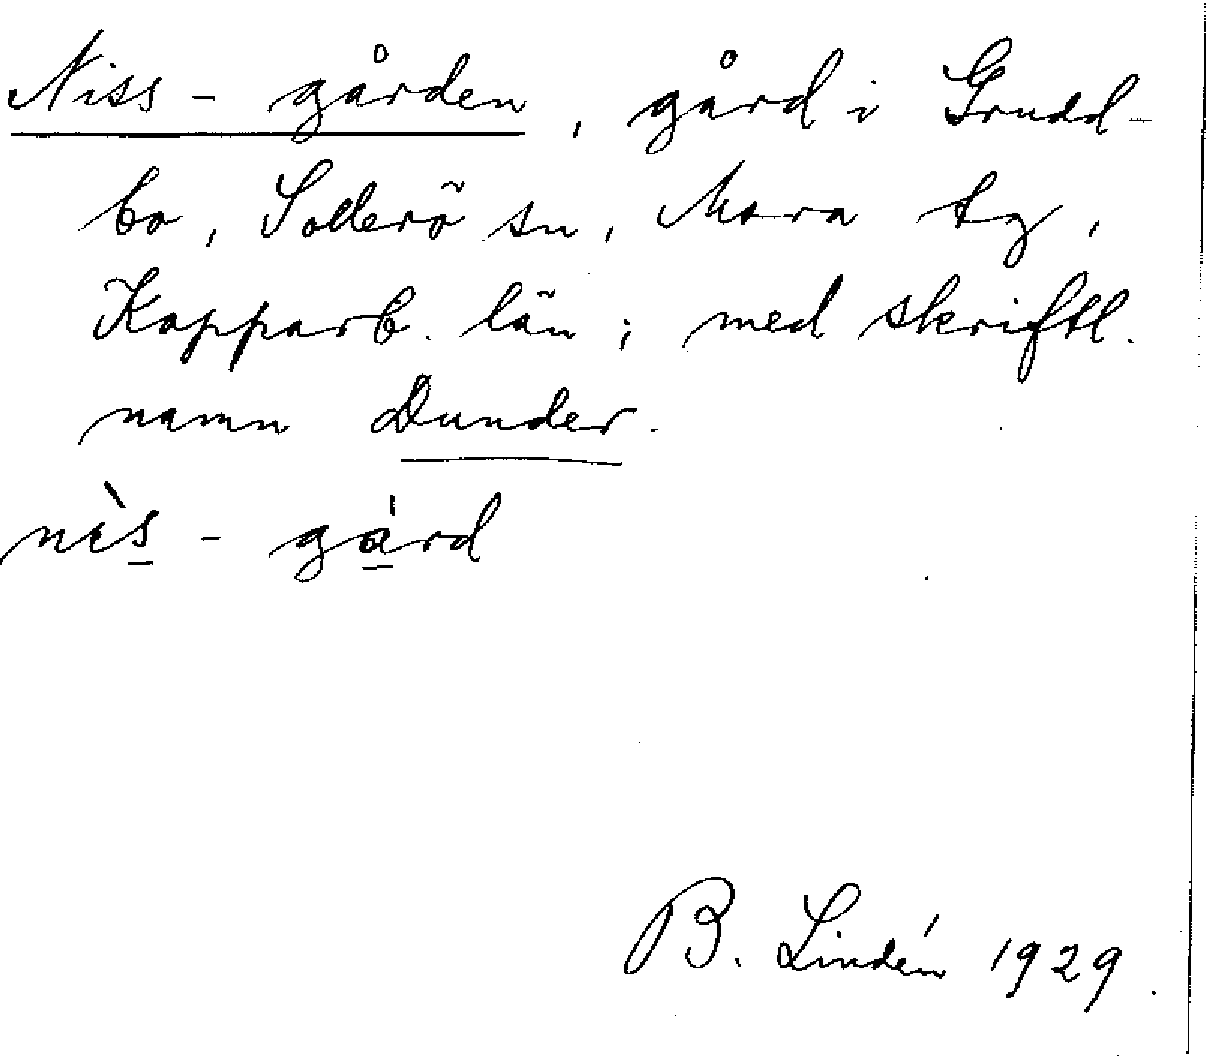 Niss-gården, gård i Grudd-
bo, Sollerö sn, Mora tg,
Kopparb. län; med skriftl.
namn Dunder.
nìs-gárd
B. Lindén 1929.